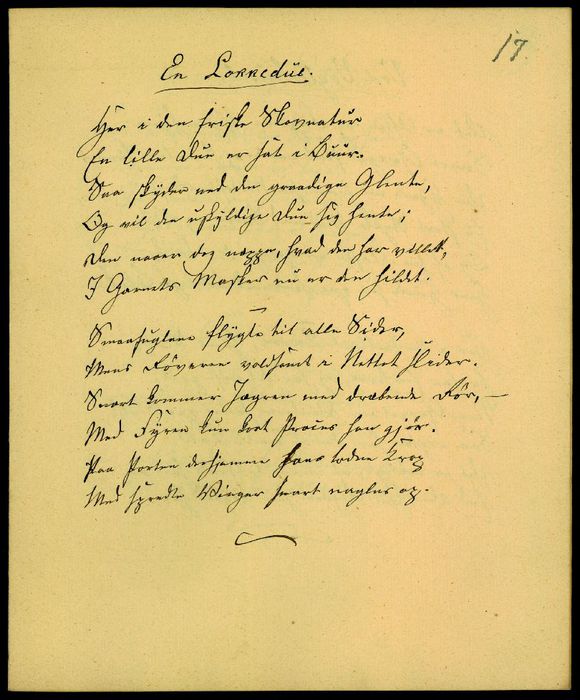 17.
En Lokkedue.
Her i den friske Skovnatur
En lille Due er sat i Buur.
Saa skyder ned den graadige Glente,
Og vil den uskyldige Due sig hente;
Den naaer dog neppe, hvad den har villet,
I Garnets Masker nu er den hildet.
Smaafuglene flygte til alle Sider,
Mens Röveren voldsomt i Nettet slider.
Snart kommer Jægren med dræbende Rör, –
Med Fyren kun kort Proces han gjör.
Paa Porten derhjemme hans Krop
Med spredte Vinger snart nagles op.